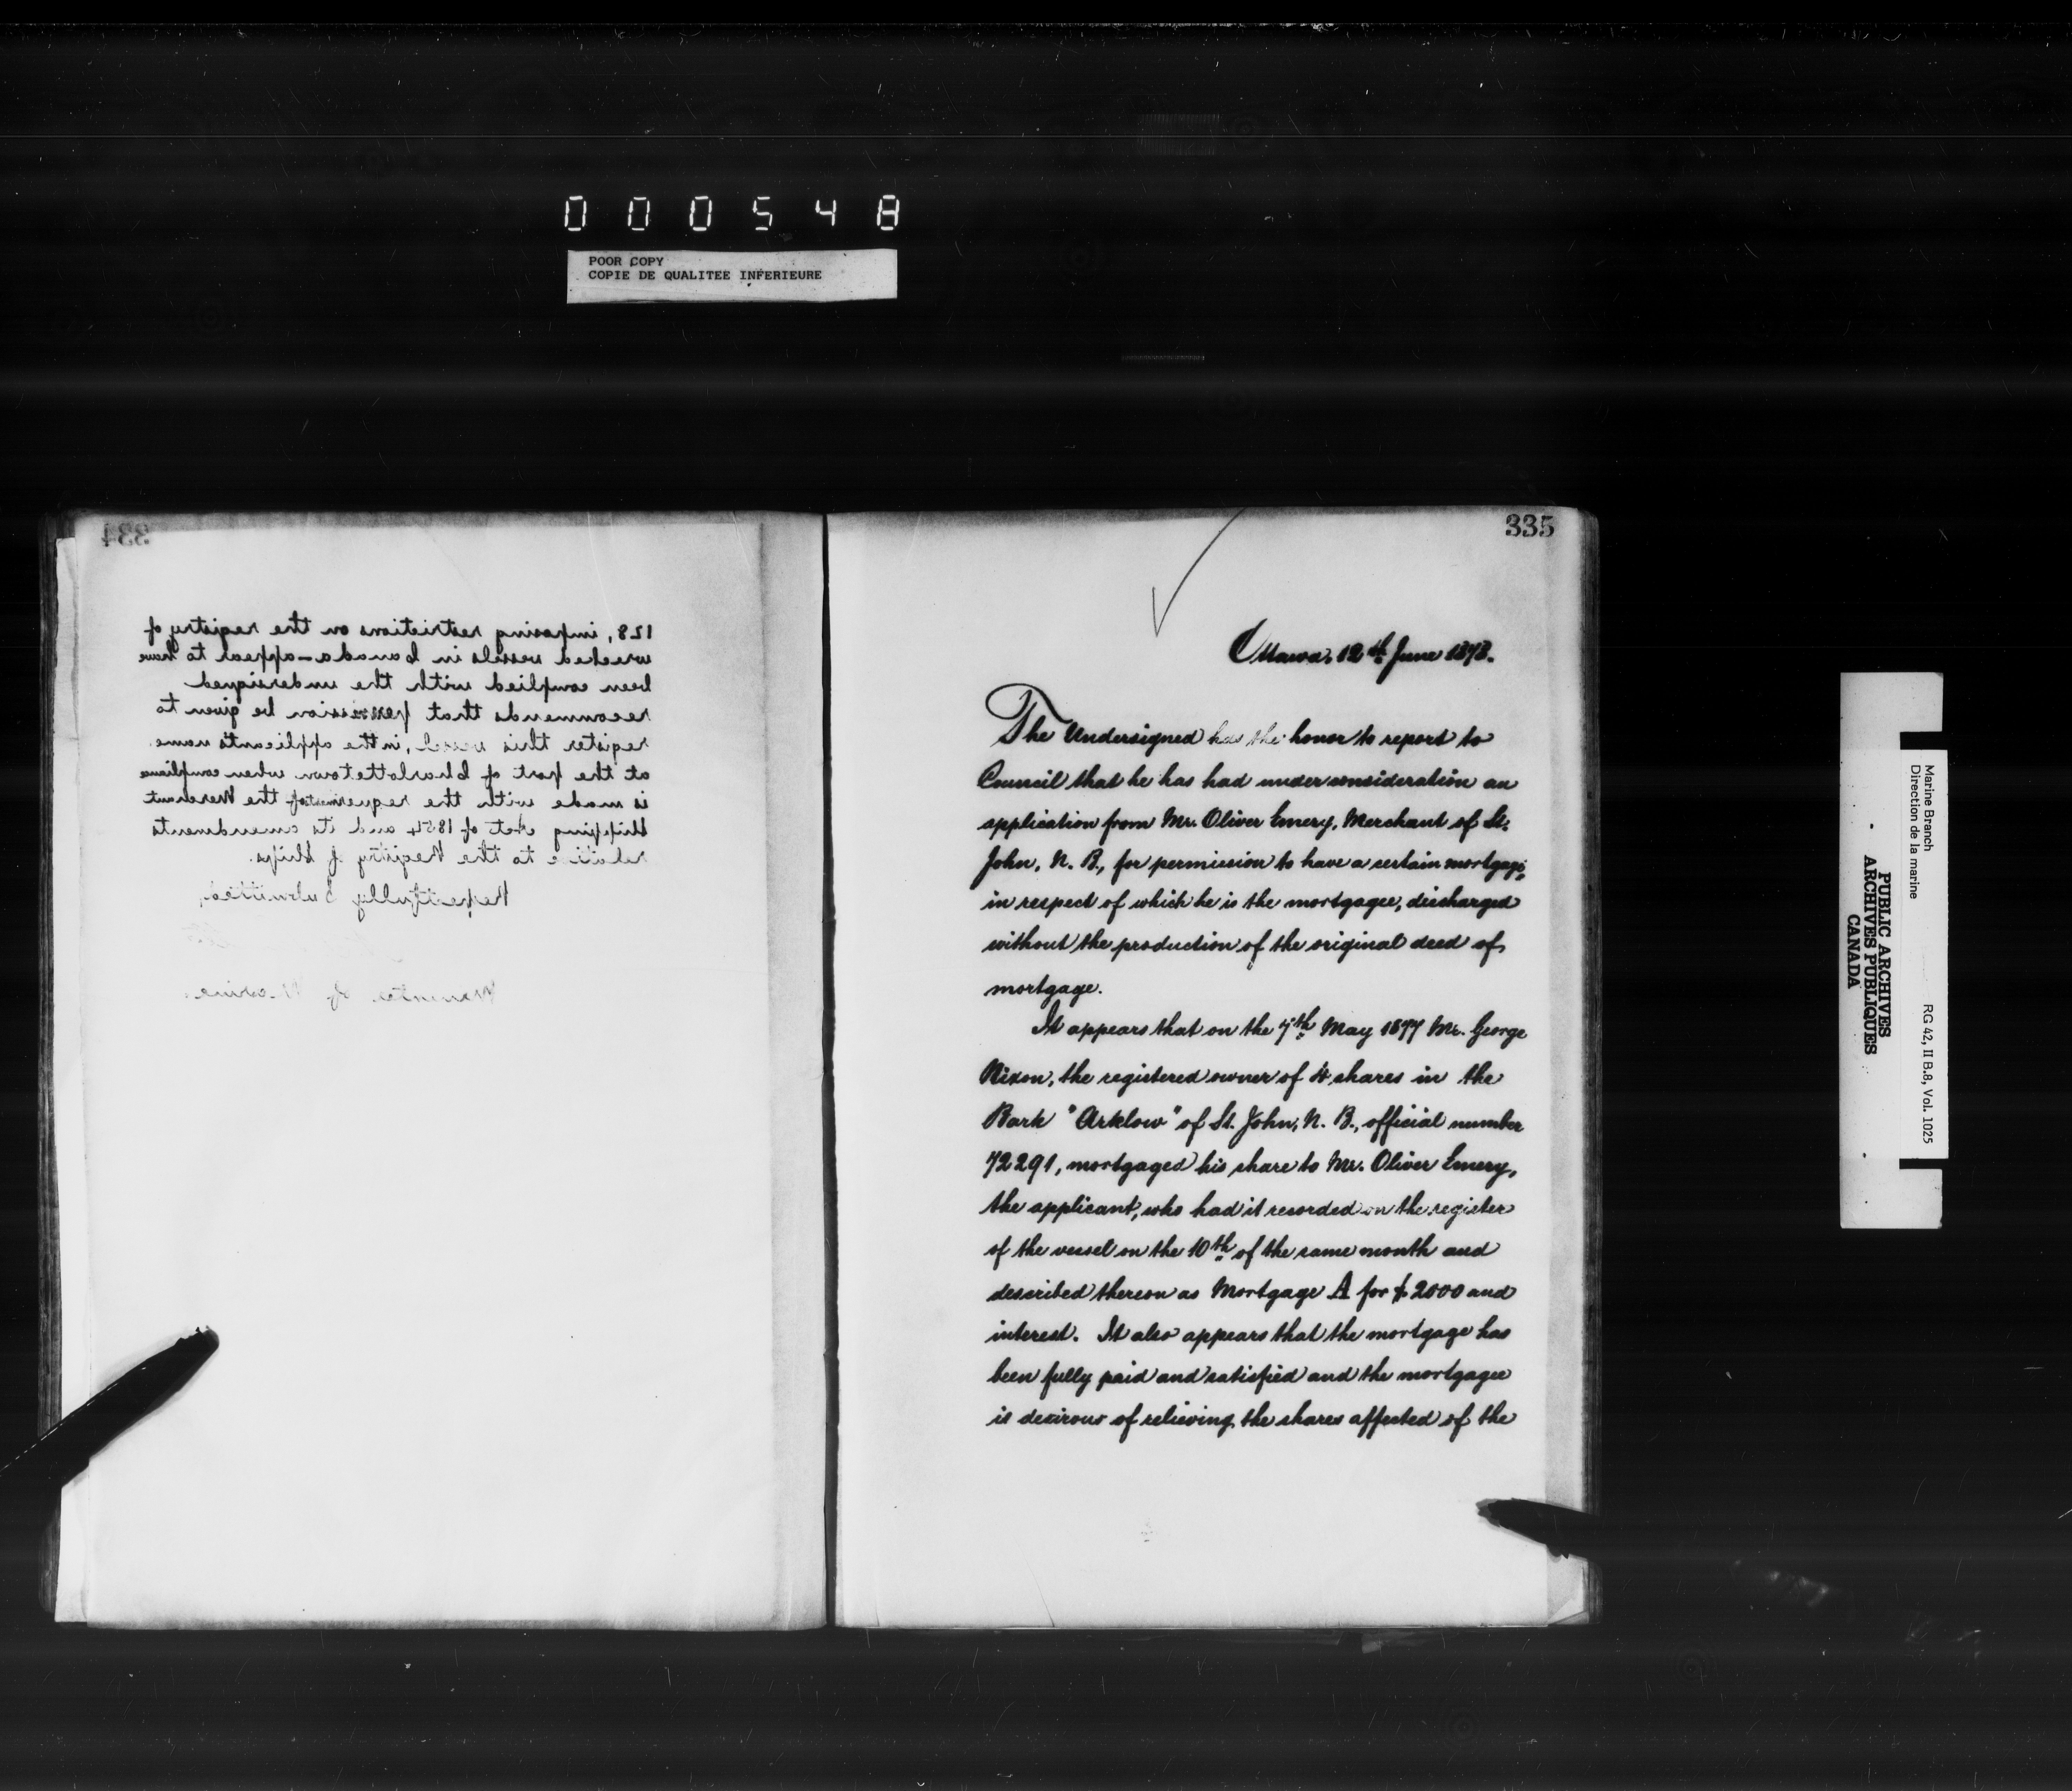 000548
POOR COPY
COPIE DE QUALITEE INFERIEURE
334
128, imposing restrictions on the registry of
wrecked vessels in Canada - appear to have
been complied with the undersigned
recommends that permission be given to
register this vessel, in the applicant's name
at the port of Charlottetown when compliance
is made with the requirements of the Merchant
Shipping Act of 1854 and its amendments
relative to the Registry of Ships.
Respectfully Submitted,
Minister of Marine.
335
Ottawa, 12th June 1878.
The Undersigned has the honor to report to
Council that he has had under consideration an
application from Mr. Oliver Emery, Merchant of St.
John, N. B., for permission to have a certain mortgage,
in respect of which he is the mortgagee, discharged
without the production of the original deed of
mortgage.
It appears that on the 7th May 1877 Mr. George
Nixon, the registered owner of 4 shares in the
Bark "Arklow" of St. John, N. B., official number
72291, mortgaged his share to Mr. Oliver Emery,
the applicant, who had it recorded on the register
of the vessel on the 10th of the same month and
described thereon as Mortgage A for $2000 and
interest. It also appears that the mortgage has
been fully paid and satisfied and the mortgagee
is desirous of relieving the shares affected of the
Marine Branch
Direction de la marine
RG 42, II B.8, Vol. 1025
PUBLIC ARCHIVES
ARCHIVES PUBLIQUES
CANADA